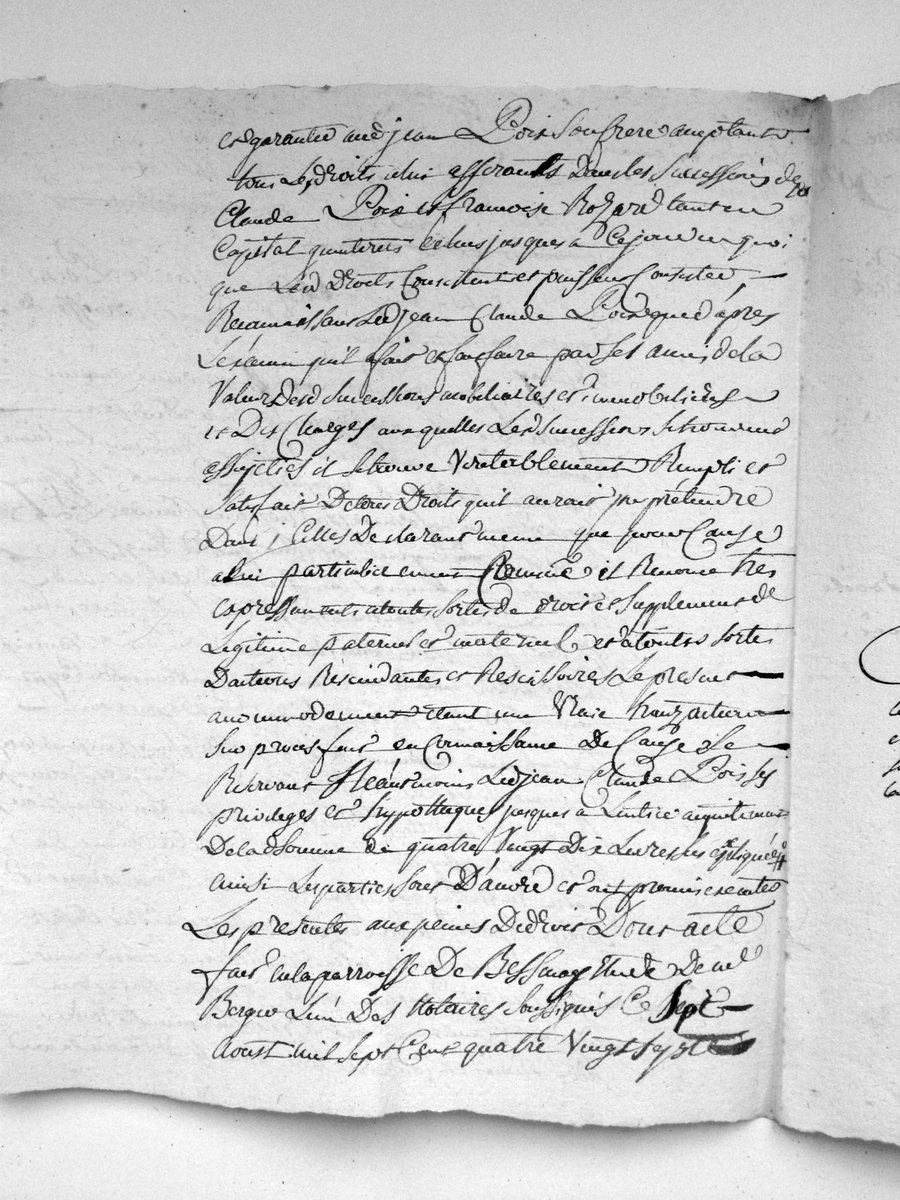 et garantie aud jean Poix son frere acceptant
tous les droits a lui afferants dans les successions de
Claude Poix et francoise Rozard tant en
Capital quinterets echus jusques a ce jour en quoi
que lesd Droits Consistent et puissent Consister
Reconnaissant led jean Claude Poix que d'après
Lexamen quil a fait et fait faire par ses amis de la
Valeur desd successions mobiliaires et immobiliaires
et Des Charges auxquelles lesd successions se trouvent
assujeties il se trouve Veritablement Rempli et
satisfait De tous Droits quil aurait pu prétendre
Dans icelles Declarant meme que pour Cause
a lui particulierement Connüe il Renonce tres
expressement a toutes sortes de droits et supplement de
Legitime paternel et maternel et a toutes sortes
Dactions Rescindantes et Rescissoires Le present
accommodement etant une Vraie tranzaction
sur proces fait en Connaissance De Cause se
Reservant Neanmoins led jean Claude Poix ses
privileges et hypotheques jusques a Lentier acquitement
De lad somme de quatre Vingt Dix Livres les expliquées
ainsi Les parties sont D'accord et ont promis executer
Les presentes aux peines De droit Dont acte
fait en la parroisse De Bessenay Etude De me
Lun Des Notaires soussignés Ce sept
aoust mil sept Cent quatre Vingt sept